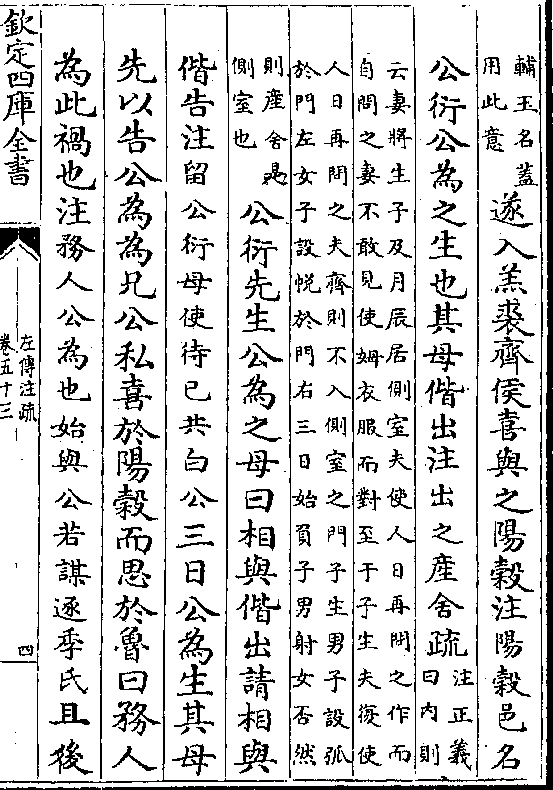 輔玉名蓋
用此意
遂入羔裘齊侯喜與之陽穀注陽穀邑名
公衍公為之生也其母偕出注出之產舍疏
注正義
曰内則
云妻將生子及月辰居側室夫使人日再問之作而
自問之妻不敢見使姆衣服而對至于子生夫復使
人日再問之夫齊則不入側室之門子生男子設弧
於門左女子設帨於門右三日始負子男射女否然
則產舍是
側室也
公衍先生公為之母曰相與偕出請相與
偕告注留公衍母使待已共白公三日公為生其母
先以告公為為兄公私喜於陽穀而思於魯曰務人
為此禍也注務人公為也始與公若謀逐季氏且後
欽定四庫全書
左傳注疏
卷五十三
四